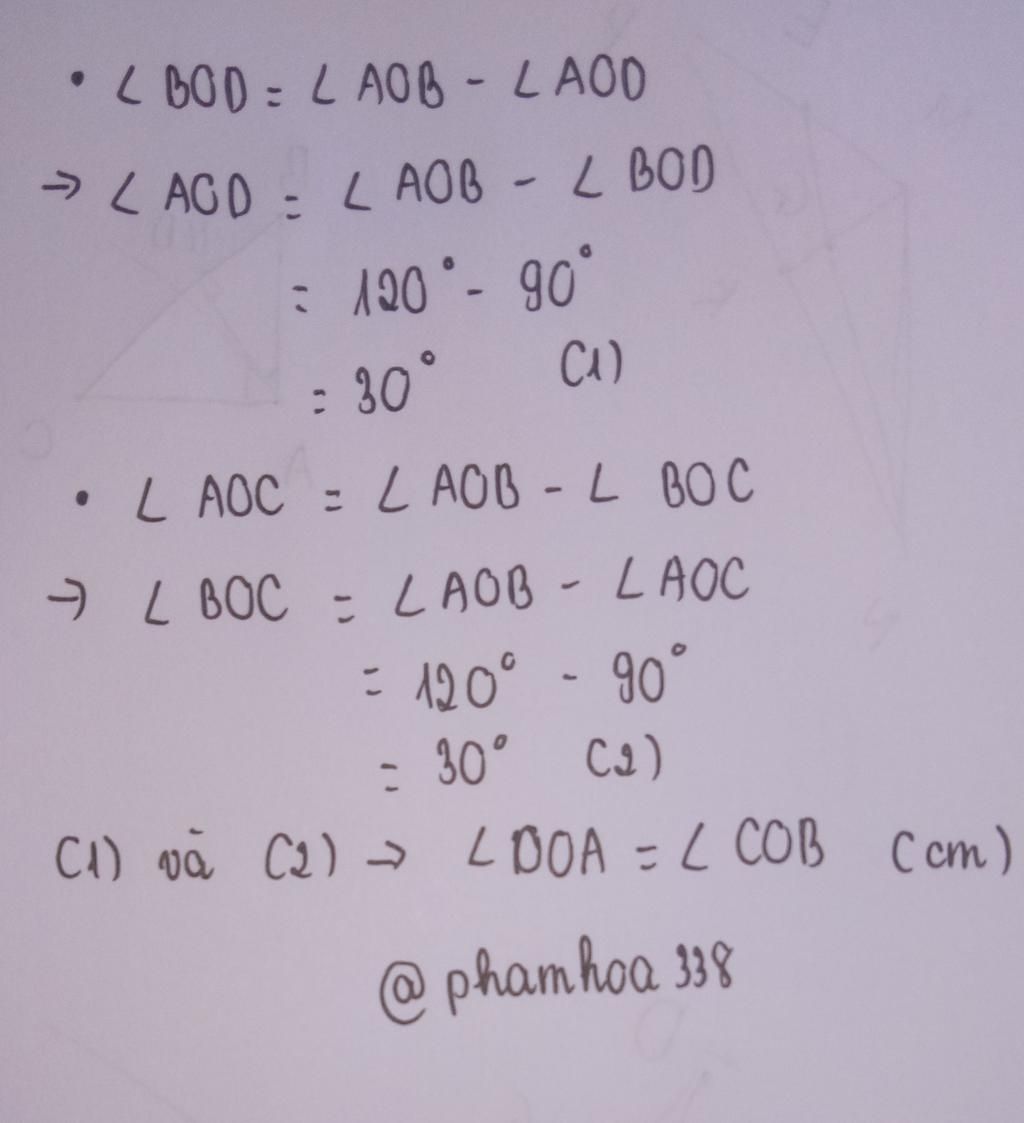 • ∠ BOD = ∠ AOB - ∠ AOD
→ ∠ AOD = ∠ AOB - ∠ BOD
= 120° - 90°
= 30° (1)
• ∠ AOC = ∠ AOB - ∠ BOC
→ ∠ BOC = ∠ AOB - ∠ AOC
= 120° - 90°
= 30° (2)
(1) và (2) → ∠ DOA = ∠ COB (cm)
@phamhoa338